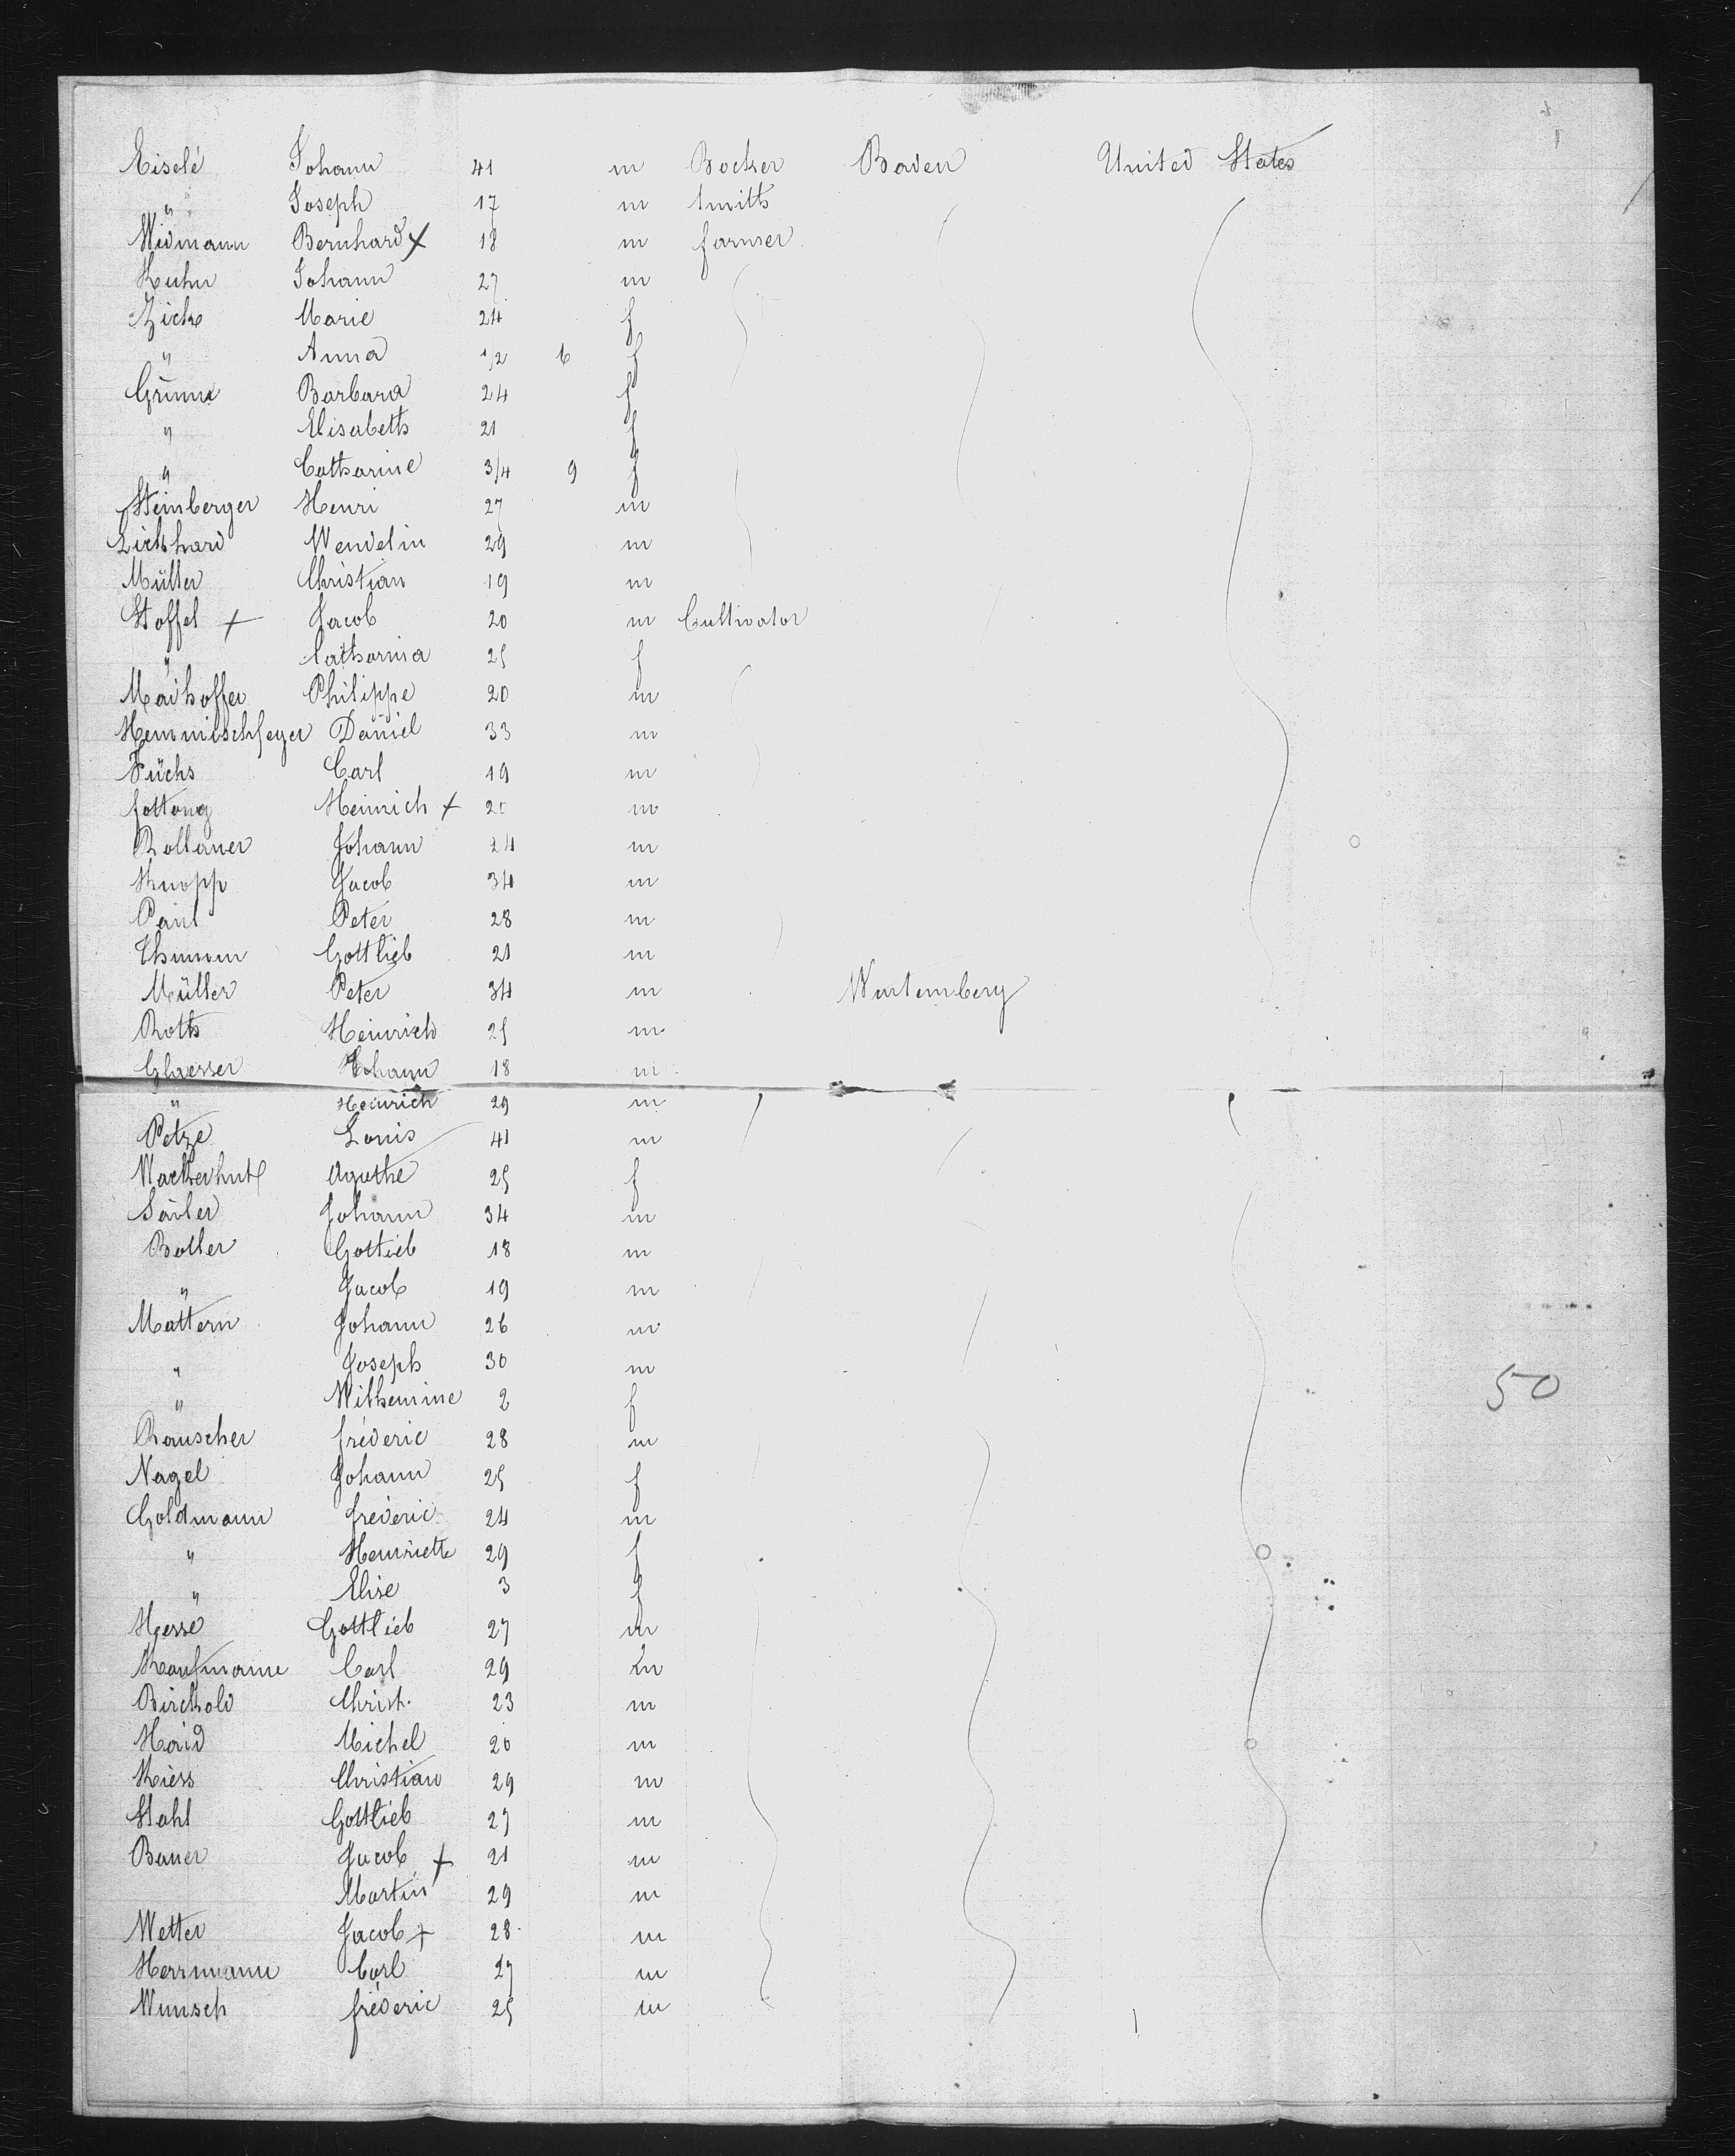 Eiselé Johann 41 m Bocker Baden United States
" Joseph 17 m Smith
Widmann Bernhard x 18 m farmer
Kuhn Johann 27 m
Zick Marie 24 f
" Anna 1/2 6 f
Grimm Barbara 24 f
" Elisabeth 21 f
" Catharine 3/4 9 f
Steinberger Henri 27 m
Lickhard Wendelin 29 m
Müller Christian 19 m
Stoffel x Jacob 20 m Cultivator
" Catharina 25 f
Maihoffer Philippe 20 m
Daniel 33 m
Fuchs Carl 19 m
fottong Heinrich x 20 m
Rollauer Johann 24 m
Knopp Jacob 34 m
Paul Peter 28 m
Thumm Gottlieb 21 m
Müller Peter 34 m Wurtemberg
Roth Heinrich 25 m
Glaesser Johann 18 m
" Heinrich 29 m
Petze Louis 41 m
Wackerhut Agathe 25 f
Sailer Johann 34 m
Boller Gottieb 18 m
" Jacob 19 m
Mattern Johann 26 m
" Joseph 30 m
" Wilhemine 2 f
50
Rauscher fréderic 28 m
Nagel Johann 25 f
Goldmann fréderic 24 m
" Henriette 29 f
" Elise 3 f
Hesse Gottlieb 27 m
Kaufmann Carl 29 m
Birckold Christ. 23 m
Haid Michel 20 m
Kiess Christian 29 m
Stahl Gottlieb 27 m
Bauer Jacob x 21 m
Martin 29 m
Wetter Jacob x 28 m
Herrmann Carl 27 m
Wunsch fréderic 25 m